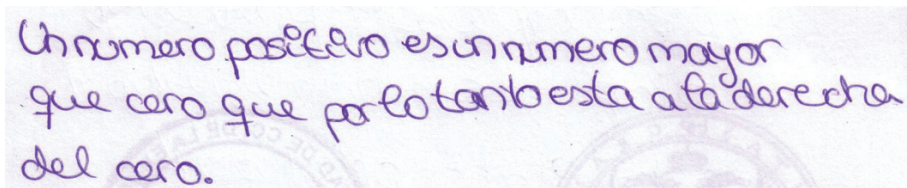 Un numero positivo es un numero mayor
que cero que por lo tanto esta a la derecha
del cero.